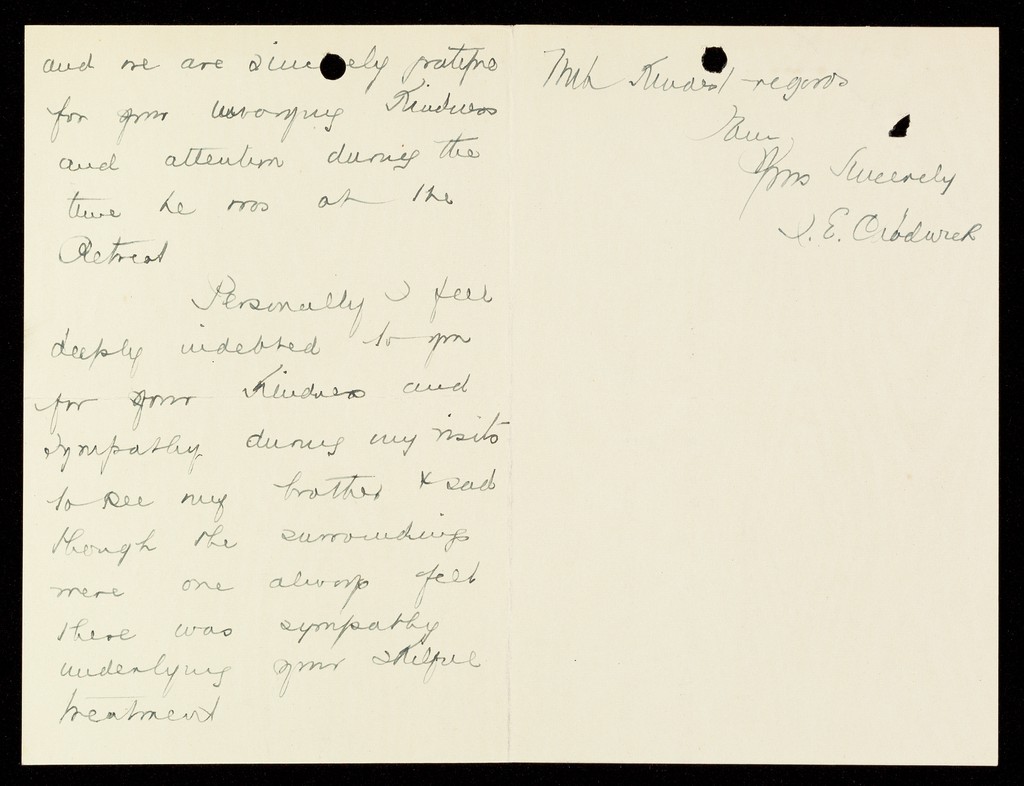 and we are sincerely grateful
for your unvarying Kindness
and attention during the
time he was at the
Retreat
Personally I feel
deeply indebted to you
for your Kindness and
sympathy during my visits
to see my brother & sad
though the surroundings
were one always felt
there was sympathy
underlying your skilful
treatment
With Kindest regards
I am
Yours Sincerely
E.